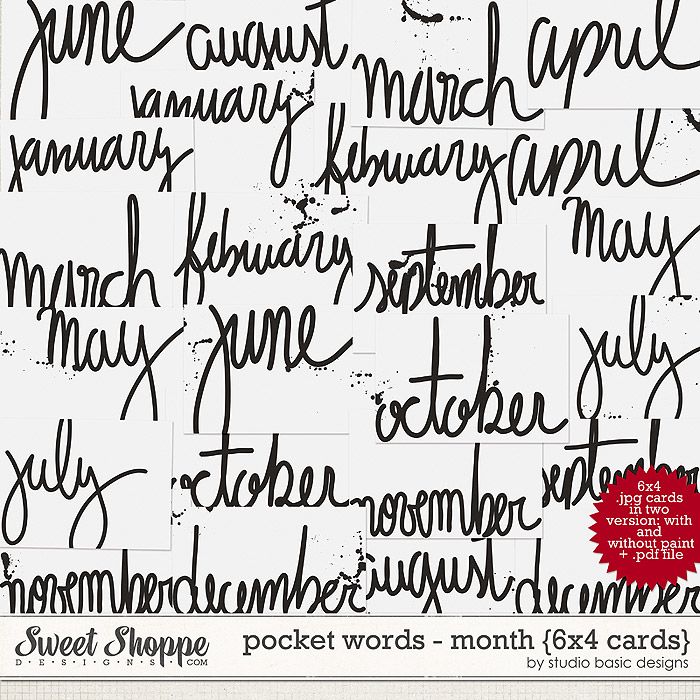 june
august
march
april
january
january
february
april
march
february
september
may
may
june
october
july
july
october
november
september
november
december
august
december
6x4
.jpg cards
in two
version: with
and
without paint
+ .pdf file
Sweet Shoppe
DESIGNS.COM
pocket words - month {6x4 cards}
by studio basic designs